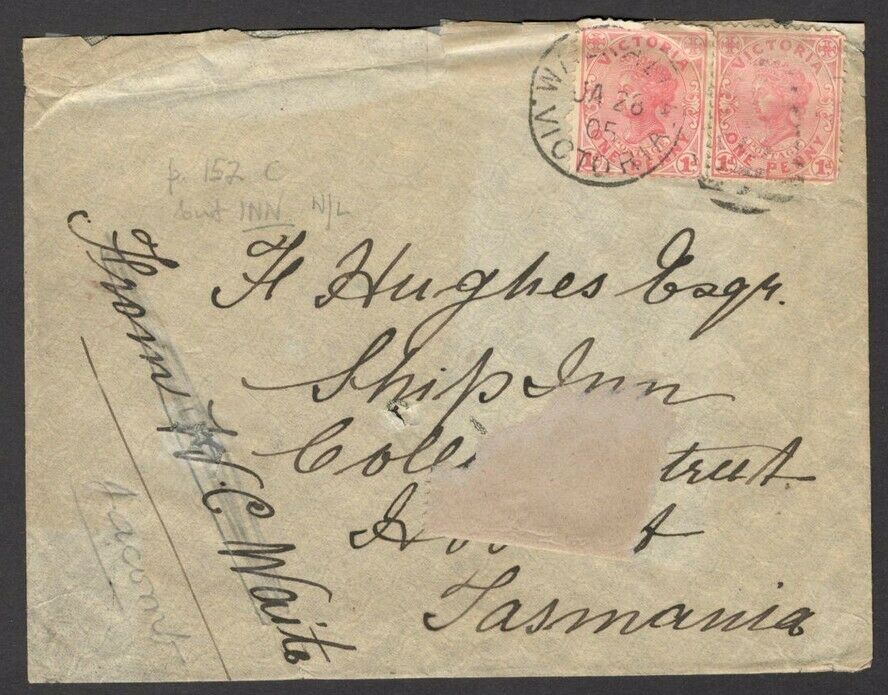 VICTORIA
ONE PENNY
1d 1d
VICTORIA
ONE PENNY
1d 1d
JA 28
05
VICTORIA
p. 152 C
but INN N/L
H Hughes Esqr.
Ship Inn
Coll treet
Ho t
Tasmania
From W. C Waite